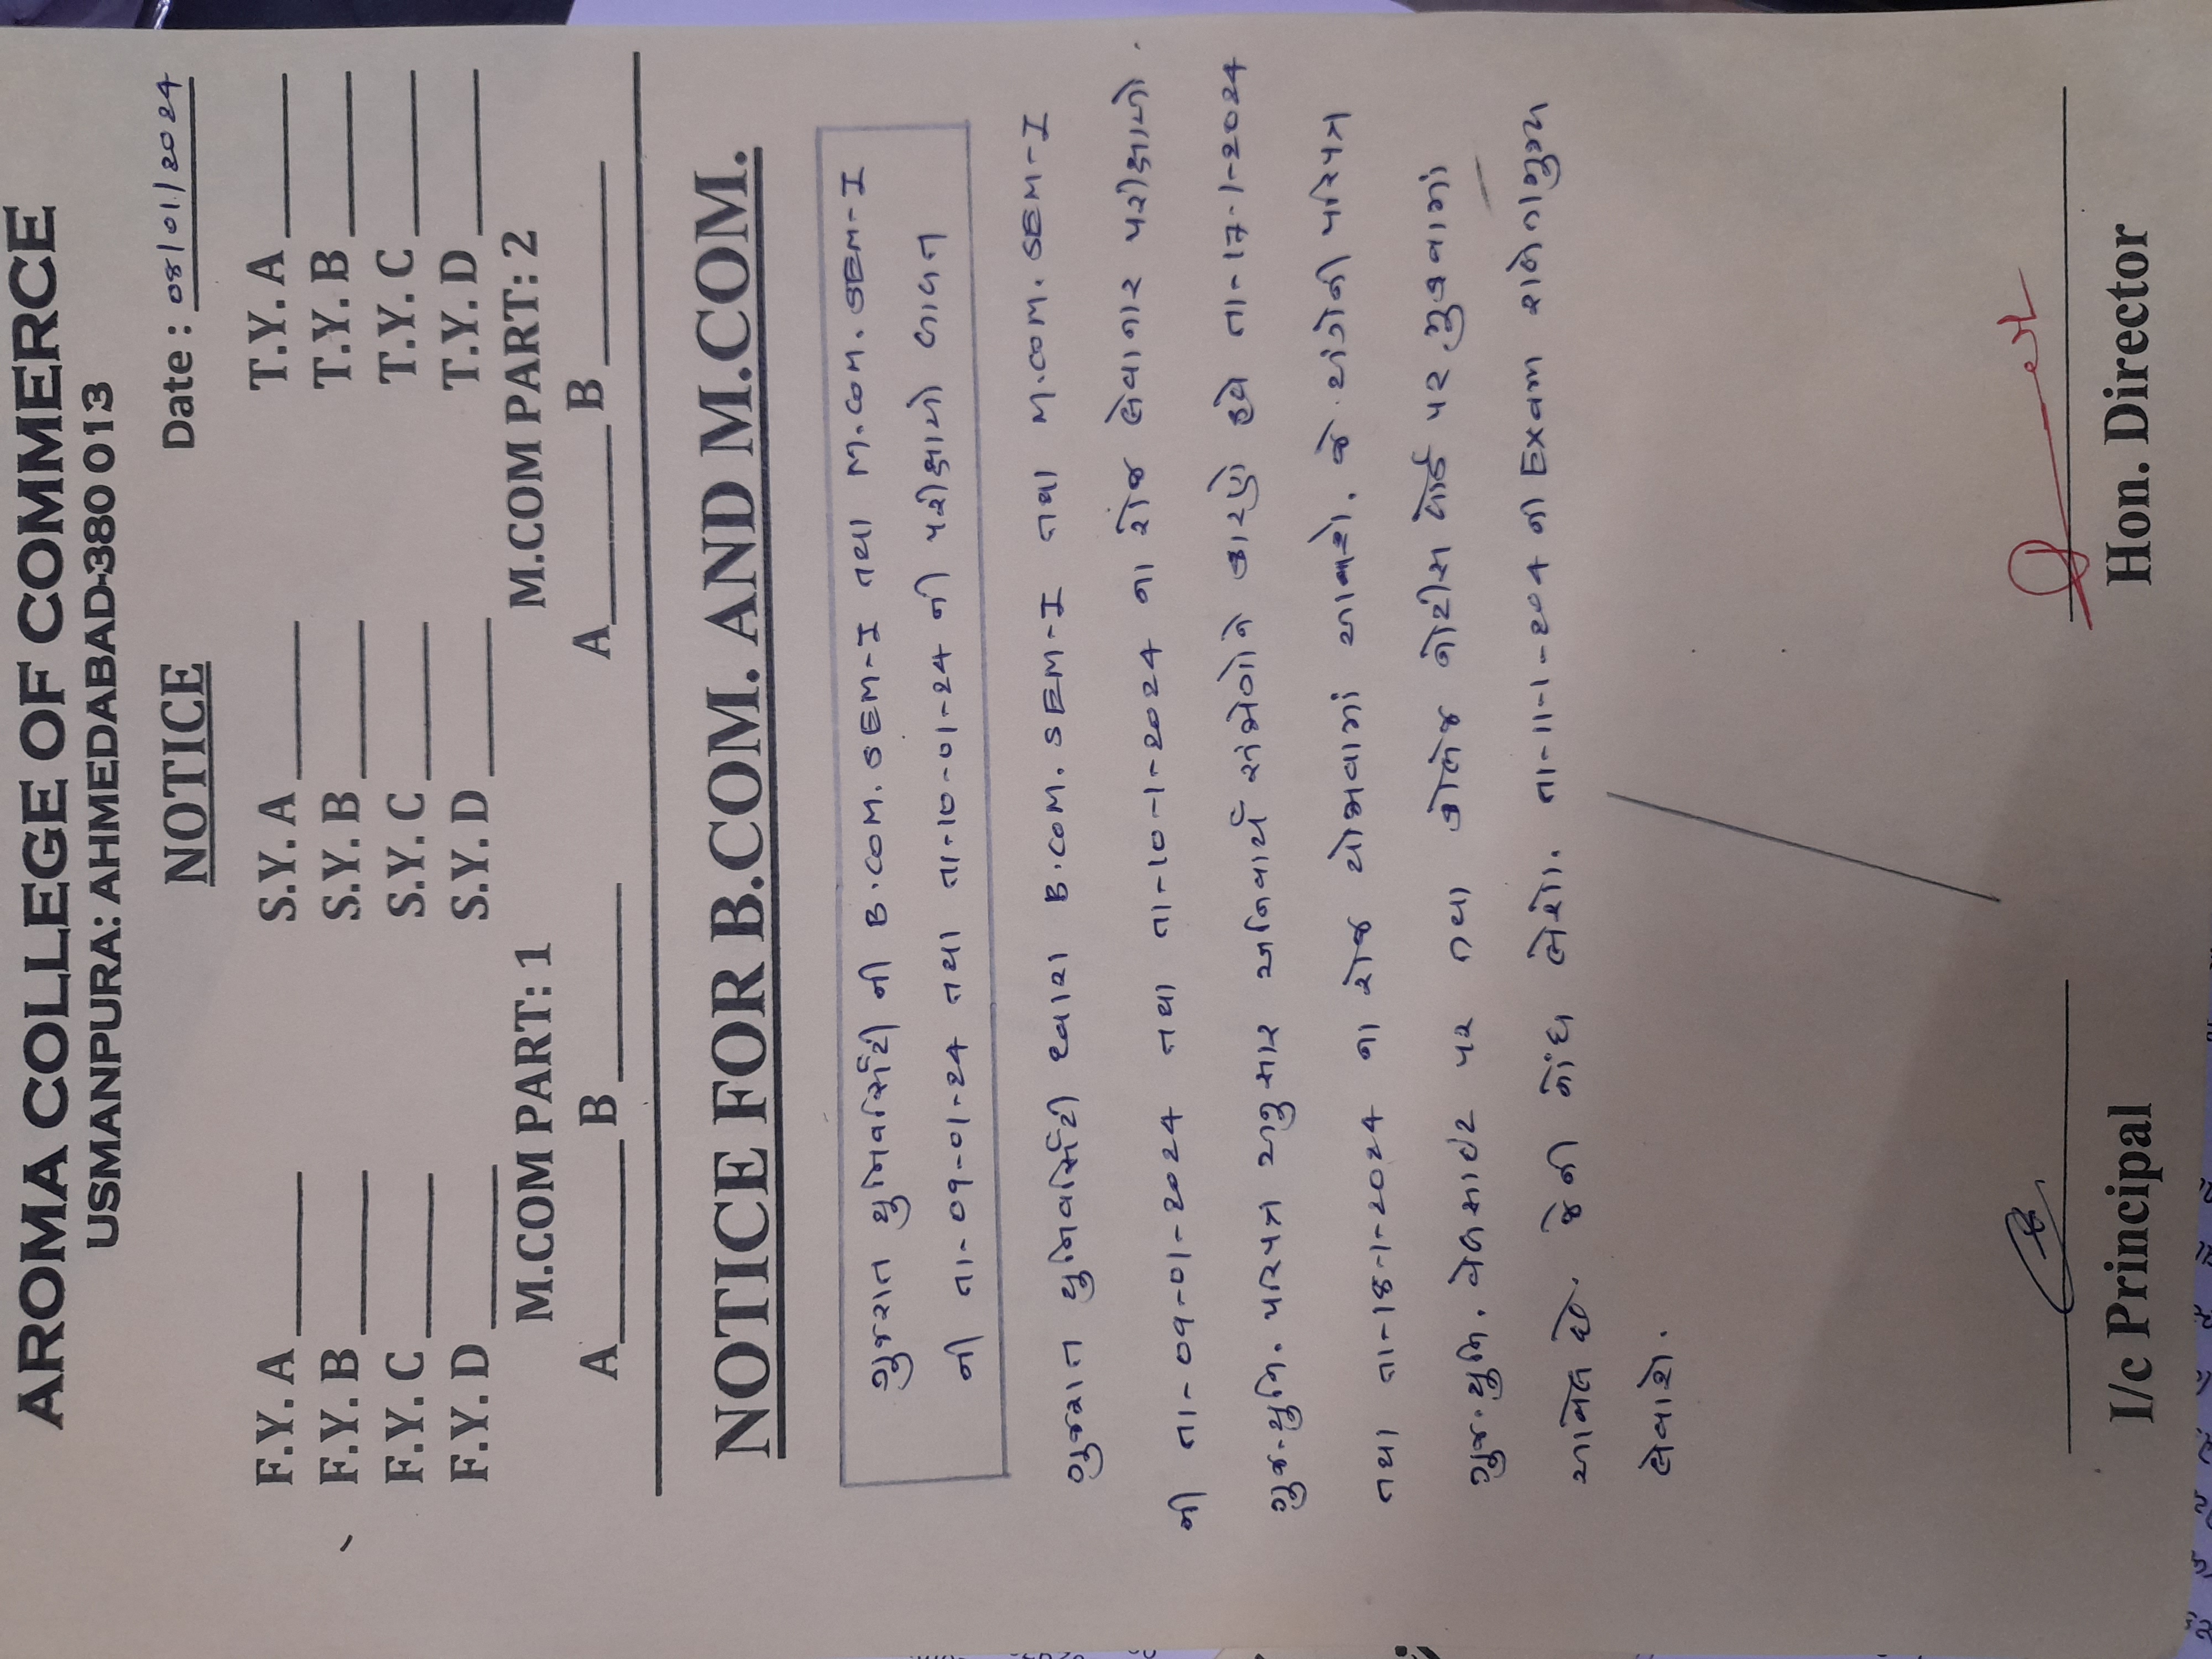 AROMA COLLEGE OF COMMERCE
USMANPURA: AHMEDABAD-380 013
NOTICE Date : 08/01/2024
F.Y. A ______ S.Y. A ______ T.Y. A ______
F.Y. B ______ S.Y. B ______ T.Y. B ______
F.Y. C ______ S.Y. C ______ T.Y. C ______
F.Y. D ______ S.Y. D ______ T.Y. D ______
M.COM PART: 1 M.COM PART: 2
A______B______ A______B______
NOTICE FOR B.COM. AND M.COM.
ગુજરાત યુનિવર્સિટી ની B.COM. SEM-I તથા M.COM. SEM-I
ની તા-09-01-24 તથા તા-10-01-24 ની પરીક્ષાઓ બાબત
ગુજરાત યુનિવર્સિટી દ્વારા B.COM. SEM-I તથા M.COM. SEM-I
ની તા-09-01-2024 તથા તા-10-1-2024 ના રોજ લેવાનાર પરીક્ષાઓ.
ગુજ.યુનિ. પરિપત્ર અનુસાર અનિવાર્ય સંજોગોને કારણે હવે તા-17-1-2024
તથા તા-18-1-2024 ના રોજ યોજવામાં આવશે. જે અંગેની પરિપત્ર
ગુજ.યુનિ. વેબસાઇટ પર તથા કોલેજ નોટીસ બોર્ડ પર મુકવામાં
આવેલ છે. જેની નોંધ લેશો. તા-11-1-204 ની Exam રાબેતામુજબ
લેવાશે.
I/c Principal Hon. Director